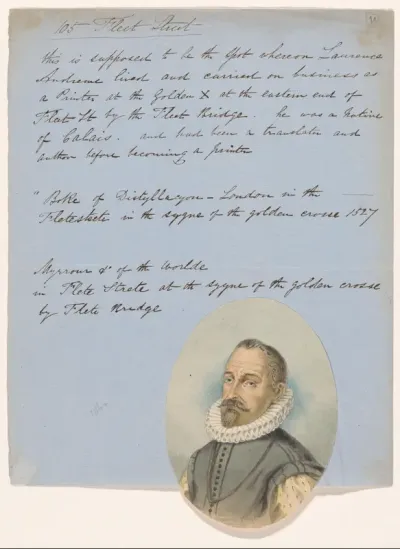 105 Fleet Street
this is supposed to be the spot whereon Laurence
Andrewe lived and carried on business as
a Printer at the Golden X at the eastern end of
Fleet St by the Fleet Bridge. he was a native
of Calais. and had been a translator and
author before becoming a printer
"Boke of Distyllacyon – London in the
Fletestrete in the sygne of the golden crosse 1527
Myrrour &c of the Worlde
in Flete Strete at the sygne of the golden crosse
by Flete Bridge